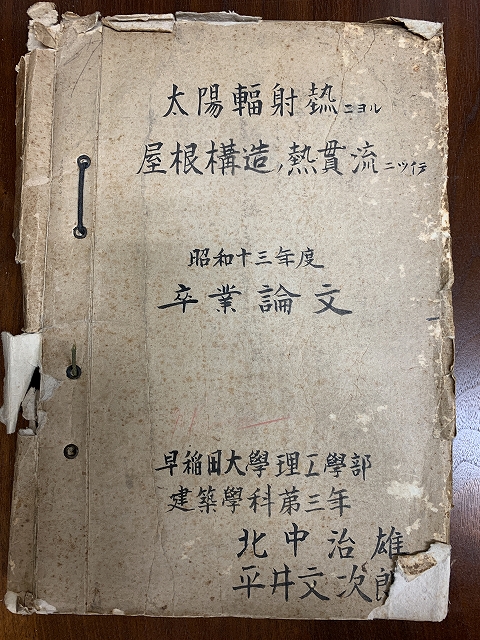 太陽輻射熱ニヨル
屋根構造ノ熱貫流ニツイテ
昭和十三年度
卒業論文
早稲田大學理工學部
建築學科第三年
北中治雄
平井文次郎